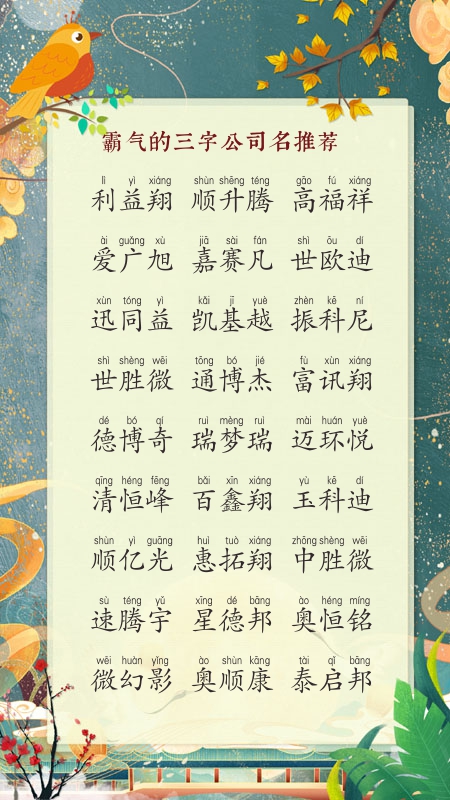 霸气的三字公司名推荐
lì yì xiáng shùn shēng téng gāo fú xiáng
利益翔 顺升腾 高福祥
ài guǎng xù jiā sài fán shì ōu dí
爱广旭 嘉赛凡 世欧迪
xùn tóng yì kǎi jī yuè zhèn kē ní
迅同益 凯基越 振科尼
shì shèng wēi tōng bó jié fù xùn xiáng
世胜微 通博杰 富讯翔
dé bó qí ruì mèng ruì mài huán yuè
德博奇 瑞梦瑞 迈环悦
qīng héng fēng bǎi xīn xiáng yù kē dí
清恒峰 百鑫翔 玉科迪
shùn yì guāng huì tuò xiáng zhōng shèng wēi
顺亿光 惠拓翔 中胜微
sù téng yǔ xīng dé bāng ào héng míng
速腾宇 星德邦 奥恒铭
wēi huàn yǐng ào shùn kāng tài qǐ bāng
微幻影 奥顺康 泰启邦